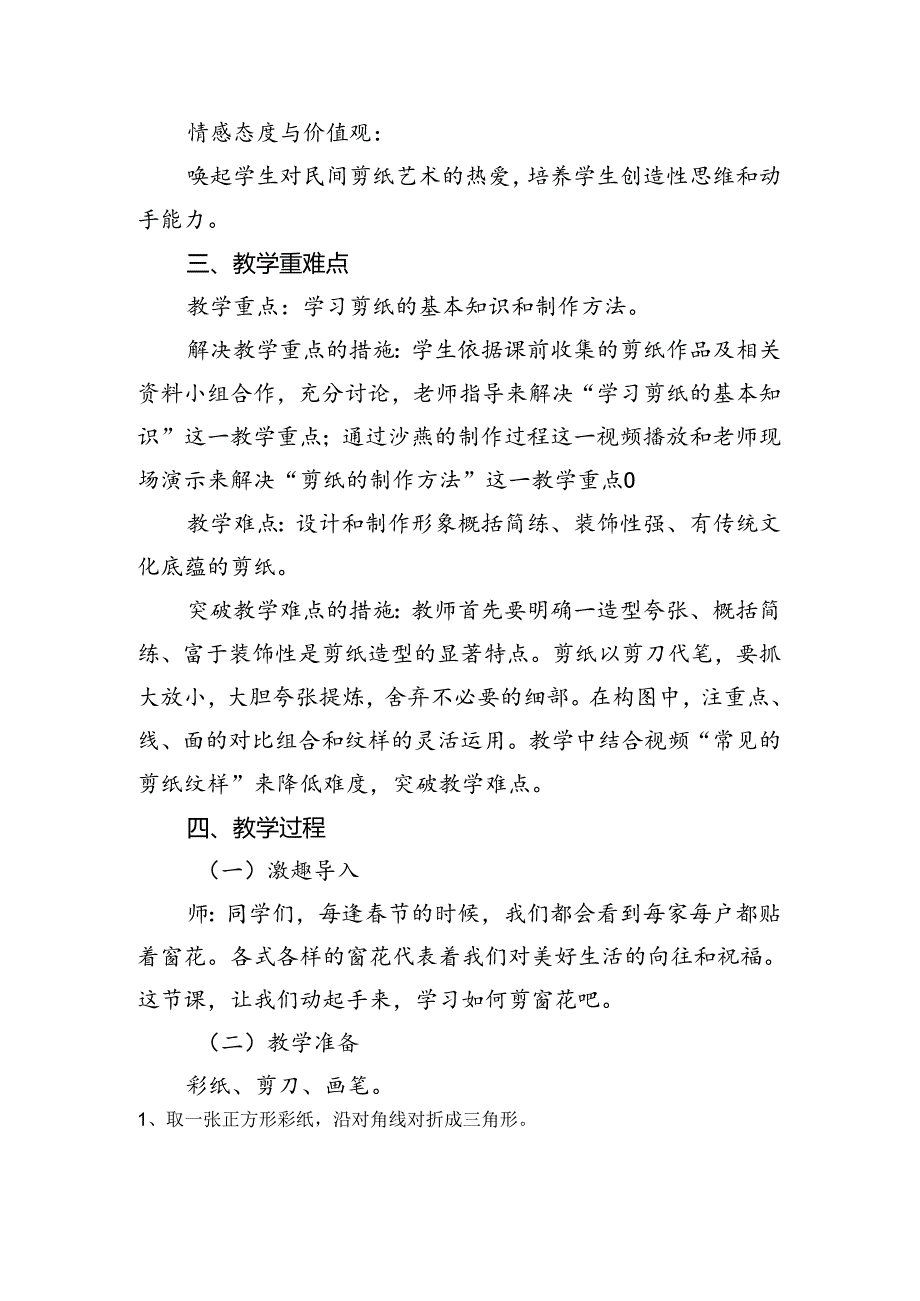 情感态度与价值观：
唤起学生对民间剪纸艺术的热爱，培养学生创造性思维和动
手能力。
三、教学重难点
教学重点：学习剪纸的基本知识和制作方法。
解决教学重点的措施：学生依据课前收集的剪纸作品及相关
资料小组合作，充分讨论，老师指导来解决“学习剪纸的基本知
识”这一教学重点；通过沙燕的制作过程这一视频播放和老师现
场演示来解决“剪纸的制作方法”这一教学重点0
教学难点：设计和制作形象概括简练、装饰性强、有传统文
化底蕴的剪纸。
突破教学难点的措施：教师首先要明确一造型夸张、概括简
练、富于装饰性是剪纸造型的显著特点。剪纸以剪刀代笔，要抓
大放小，大胆夸张提炼，舍弃不必要的细部。在构图中，注重点、
线、面的对比组合和纹样的灵活运用。教学中结合视频“常见的
剪纸纹样”来降低难度，突破教学难点。
四、教学过程
（一）激趣导入
师：同学们，每逢春节的时候，我们都会看到每家每户都贴
着窗花。各式各样的窗花代表着我们对美好生活的向往和祝福。
这节课，让我们动起手来，学习如何剪窗花吧。
（二）教学准备
彩纸、剪刀、画笔。
1、取一张正方形彩纸，沿对角线对折成三角形。